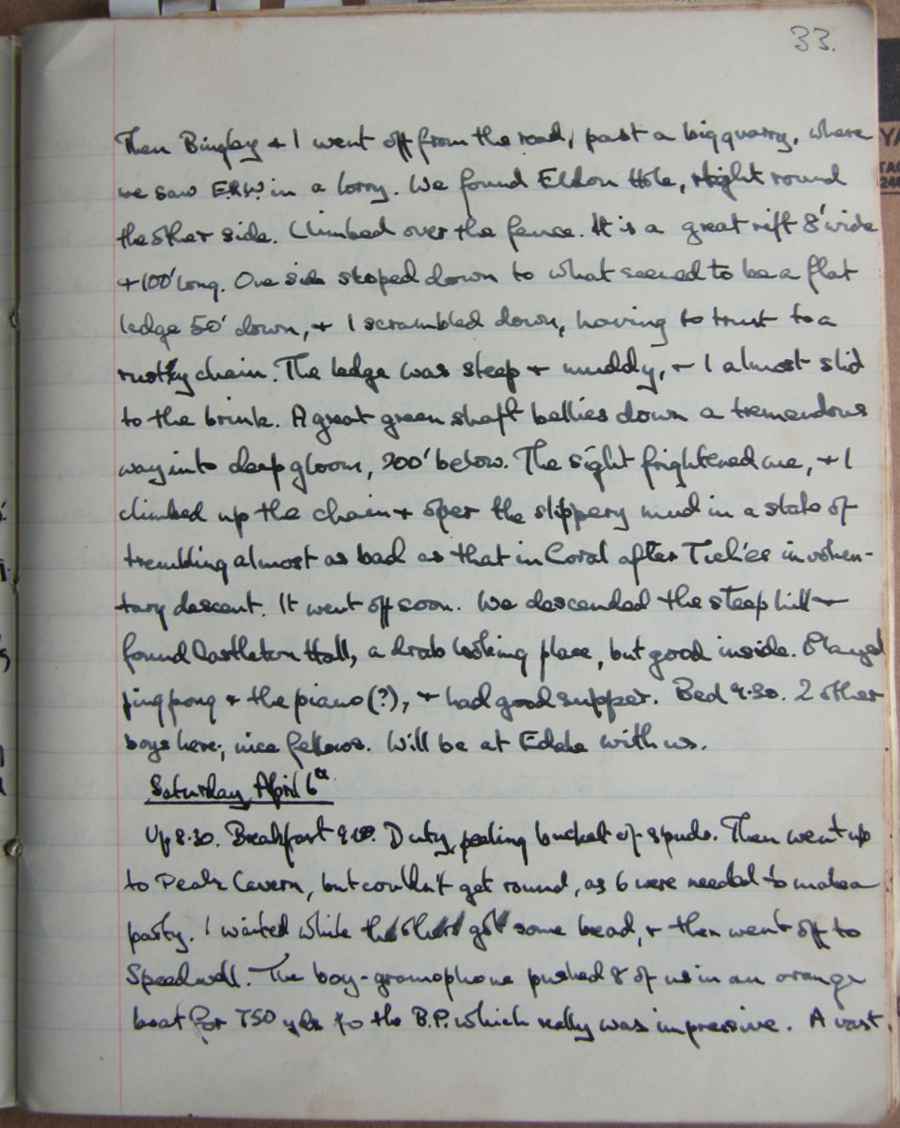 33.
Then Bingley + I went off from the road, past a big quarry, where
we saw E.R.W. in a lorry. We found Eldon Hole, right round
the other side. Climbed over the fence. It is a great rift 8' wide
+ 100' long. One side sloped down to what seemed to be a flat
ledge 50' down, + I scrambled down, having to trust to a
rusty chain. The ledge was steep + muddy, + I almost slid
to the brink. A great green shaft bellies down a tremendous
way into deep gloom, 200' below. The sight frightened me, + I
climbed up the chain + over the slippery mud in a state of
trembling almost as bad as that in Coral after involun-
tary descent. It went off soon. We descended the steep hill +
found Castleton Hall, a drab looking place, but good inside. Played
pingpong + the piano (?), + had good supper. Bed 9.30. 2 other
boys here, nice fellows. Will be at Edale with us.
Saturday April 6th
Up 8.30. Breakfast Duty, peeling bucket of spuds. Then went up
to Peak Cavern, but couldn't get round, as 6 were needed to make a
party. I waited while the others got some bread, + then went off to
Speedwell. The boy-gramophone pushed 8 of us in an orange
boat for 750 yds to the B.P. which really was impressive. A vast